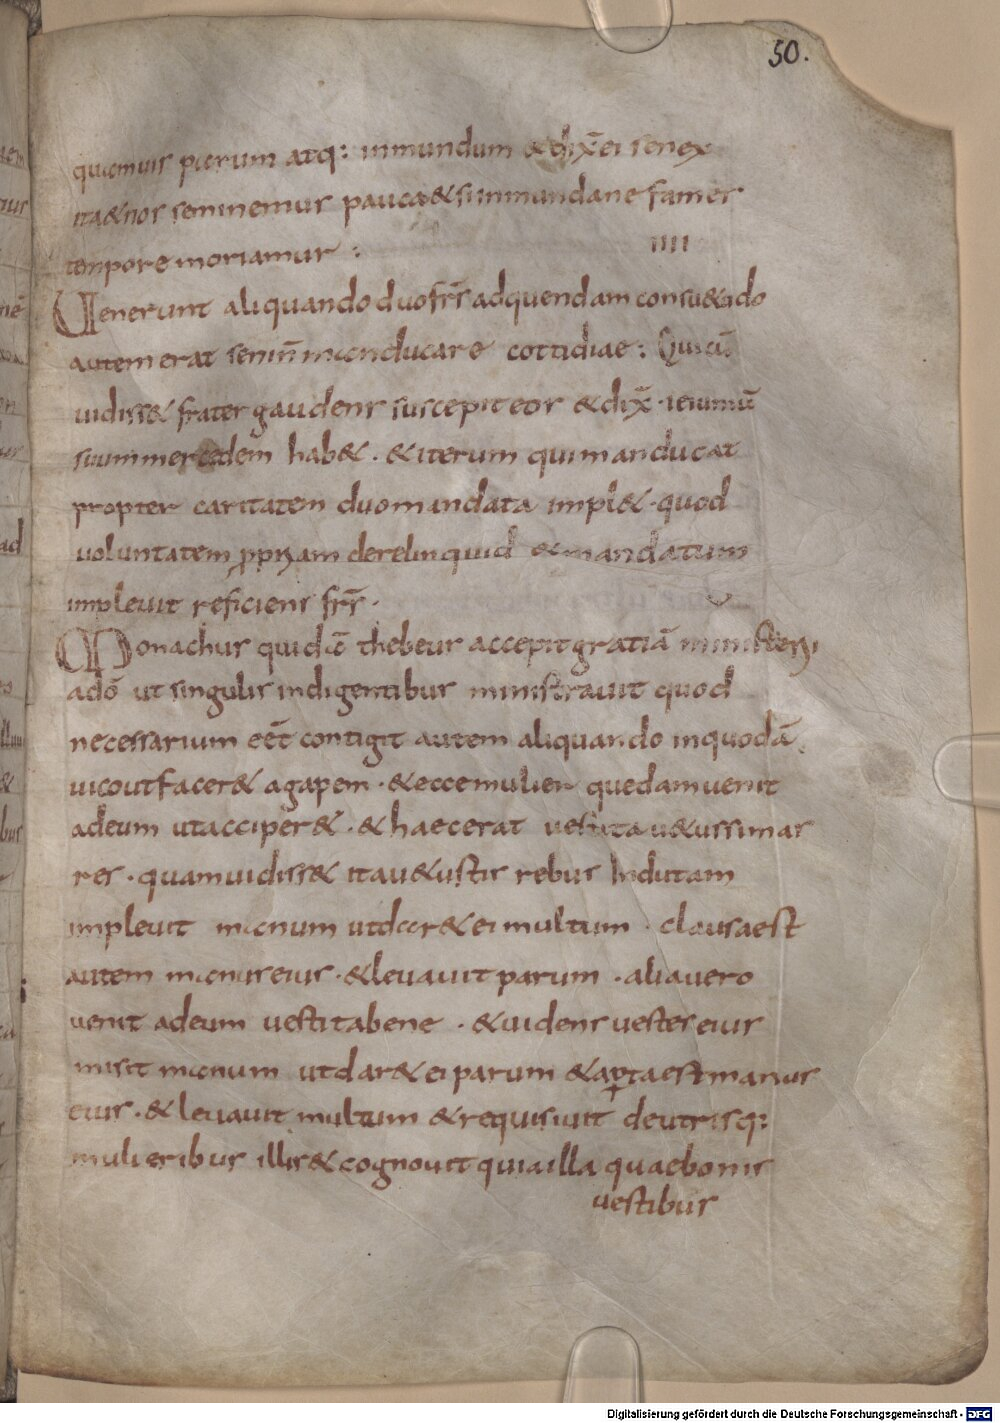 50.
quamuis parum atq: inmundum & dix̄ ei senex
ita & nos seminemus pauca & si inmunda ne famis
tempore moriamur :
IIII
Uenerunt aliquando duo fr̄s ad quendam consu&udo
autem erat senin̄ manducare cottidiae : Qui cū
uidiss& frater gaudens suscepit eos & dix̄ · ieiuniū
suum mercedem hab& . & iterum qui manducat
propter caritatem duo mandata impl& · quod
uoluntatem ꝓpriam derelinquid & mandatum
impleuit reficiens fr̄s ·
V
Monachus quidā thebeus accepit gratiā ministerii
a dō ut singulis indigentibus ministrauit quod
necessarium eēt contigit autem aliquando in quodā
uico ut facer& agapem · & ecce mulier quedam uenit
ad eum ut acciper& · & haec erat uestita u&ussimas
res · quam uidiss& ita u&ustis rebus Indutam
impleuit manum ut dar& ei multum · clausa est
autem manus eius · & leuauit parum · alia uero
uenit ad eum uestita bene · & uidens uestes eius
misit manum ut dar& ei parum & apta est manus
eius · & leuauit multum & requisiuit de utrisq:
mulieribus illis & cognouit quia illa quae bonis
uestibus
Digitalisierung gefördert durch die Deutsche Forschungsgemeinschaft - DFG